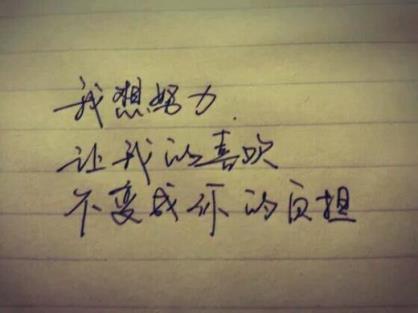 我想努力.
让我的喜欢
不变成你的负担